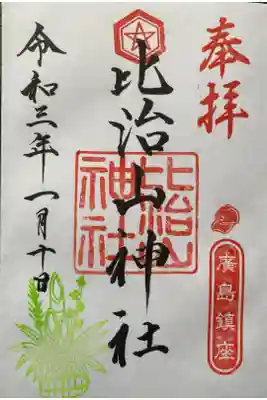 奉拝
廣島鎮座
比治山神社
比治山
神社
令和三年一月十日